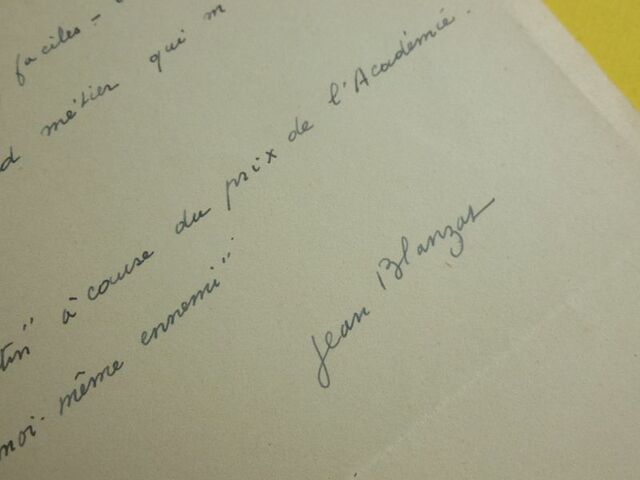 faciles -
d métier qui m
tin" à cause du prix de l'Académie.
moi-même ennemi".
Jean Blanzat